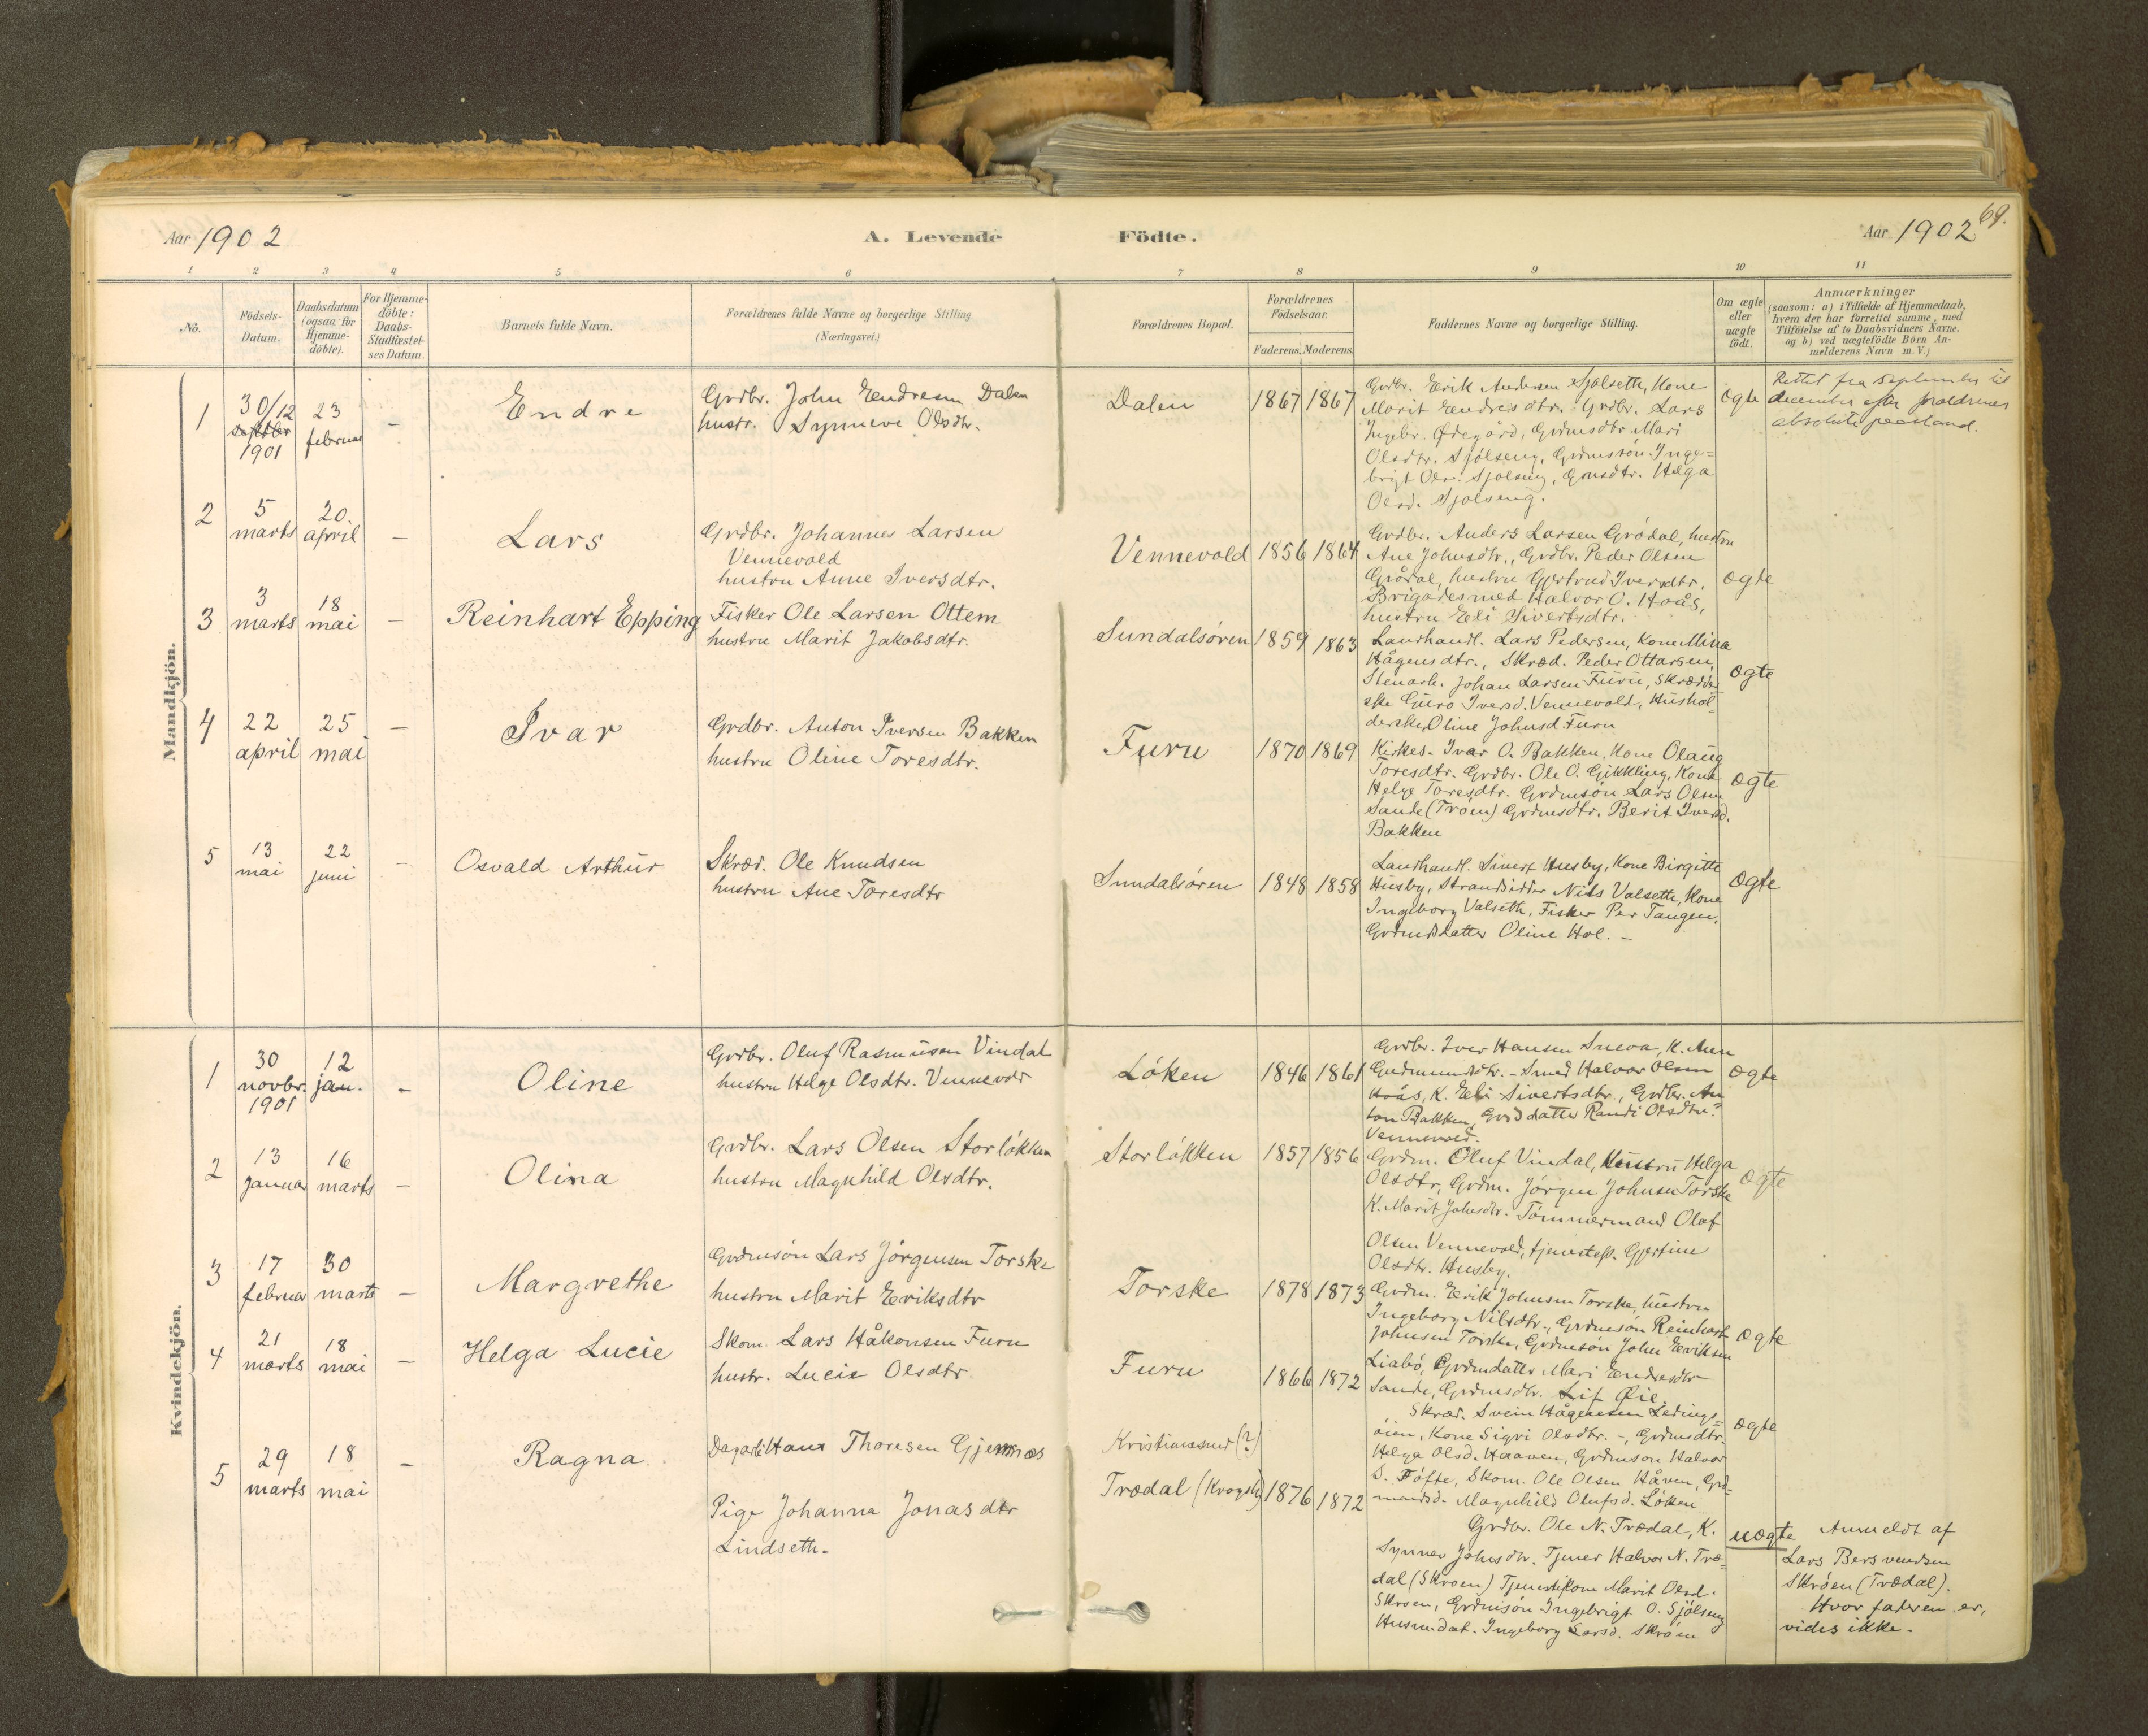 Aar 1902
A. Levende Födte.
Aar 1902
69.
1 2 3 4 5 6 7 8 9 10 11
Nô.
Födsels-
Datum.
Daabsdatum
(ogsaa for
Hjemme-
döbte).
For Hjemme-
döbte:
Daabs-
Stadfæstel-
ses Datum.
Barnets fulde Navn.
Forældrenes fulde Navne og borgerlige Stilling
(Næringsvei.)
Forældrenes Bopæl.
Forældrenes
Födselsaar.
Faderens. Moderens.
Faddernes Navne og borgerlige Stilling.
Om ægte
eller
uægte
födt.
Anmærkninger
(saasom: a) i Tilfælde af Hjemmedaab,
hvem der har forrettet samme, med
Tilföielse af to Daabsvidners Navne.
og b) ved uægtefödte Börn An-
melderens Navn m.V.)
Mandkjön.
1
30/12
septbr
1901
23
februar
-
Endre
Grdbr. John Endresen Dalen
hustr. Synneve Olsdtr.
Dalen
1867 1867
Grdbr. Erik Andersen Sjølseth, Kone
Marit Endresdtr. Grdbr. Lars
Ingebr. Ødegård, Grdmsdtr Mari
Olsdtr. Sjölseng, Grdmsön Inge=
brigt Ols. Sjølseng, Gmsdtr. Helga
Olsd. Sjølseng.
ægte
Rettet fra September til
december efter forældrenes
absolute paastand.
2
5
marts
20.
april
-
Lars
Grdbr. Johannes Larsen
Vennevold
hustru Anne Iversdtr.
Vennevold
1856 1864
Grdbr. Anders Larsen Grödal, hustru
Ane Johnsdtr., Grdbr. Peder Olsen
Grödal, hustru Gjertrud Iversdtr.
Brigadesmed Halvor O. Hoås,
hustru Eli Sivertsdtr.
ægte
3
3
marts
18
mai
-
Reinhart Epping
Fisker Ole Larsen Ottem
hustru Marit Jakobsdtr.
Sundalsøren
1859 1863
Landhandl. Lars Pedersen, Kone Mina
Hågensdtr., Skræd. Peder Ottarsen,
Stenarb. Johan Larsen Furu, Skrædder
ske Guro Iversd. Vennevold, Hushol=
derske Oline Johnsd Furu
ægte
4
22
april
25
mai
-
Ivar
Grdbr. Anton Iversen Bakken
hustru Oline Toresdtr.
Furu
1870 1869
Kirkes. Ivar O. Bakken, Kone Olaug
Toresdtr. Grdbr. Ole O. Gikkling, Kone
Helge Toresdtr. Grdmsön Lars Olsen
Sande (Tröen) Grdmsdtr. Berit Iversd.
Bakken
ægte
5
13
mai
22
juni
-
Osvald Arthur
Skræd. Ole Knudsen
hustru Ane Toresdtr
Sundalsøren
1848 1858
Landhandl. Sivert Husby, Kone Birgitte
Husby, Strandsidder Nils Valseth, Kone
Ingeborg Valseth, Fisker Per Tangen,
Grdmdsdatter Oline Hol. -
ægte
Kvindekjön.
1
30
novbr.
1901
12
jan.
-
Oline
Grdbr. Oluf Rasmusen Vindal
hustru Helge Olsdtr. Vennevold
Löken
1846 1861
Grdbr. Iver Hansen Snева, K. Ane
Gudmundsdtr. - Smed Halvor Olsen
Hoås, K. Eli Sivertsdtr., Grdbr. An
ton Bakken, Grddatter Randi Olsdtr?
Vennevold.
ægte
2
13
januar
16
marts
-
Olina
Grdbr. Lars Olsen Storløkken
hustru Magnhild Olsdtr.
Storløkken
1857 1856
Grdm. Oluf Vindal, Hustru Helga
Olsdtr, Grdm. Jörgen Johnsen Torske
K. Marit Johsdtr. Tömmermand Olaf
Olsen Vennevold, tjenestep. Gjertine
Olsdtr. Husby.
ægte
3
17
februar
30
marts
-
Margrethe
Grdmsön Lars Jörgensen Torske
hustru Marit Eriksdtr
Torske
1878 1873
Grdm. Erik Johnsen Torske, hustru
Ingeborg Nilsdtr., Grdmsön Reinhart
Johnsen Torske, Grdmsön John Eriksen
Liabö, Grdmdatter Mari Endresdtr
Sande, Grdmsdtr. Lif Øie.
ægte
4
21
marts
18
mai
-
Helga Lucie
Skom. Lars Håkonsen Furu
hustr. Lucie Olsdtr
Furu
1866 1872
Skræd. Svein Hågensen Ledings=
öien, Kone Sigri Olsdtr. -, Grdmsdtr.
Helga Olsd. Haaven, Grdmson Halvor
S. Töfte, Skom. Ole Olsen Håven, Grd=
mandsd. Magnhild Olufsd. Löken
ægte
5
29
marts
18
mai
-
Ragna
Dagarb. Hans Thoresen Gjemnæs
Pige Johanna Jonasdtr
Lindseth.
Kristianssund (?)
Trædal
1876 1872
Grdbr. Ole N. Trædal, K.
Synnev Johnsdtr. Tjener Halvor N. Træ=
dal (Skroen) Marit Olsd.
Skroen, Grdmsön Ingebrigt O. Sjölseng
Husmdat. Ingeborg Larsd. Skröen
uægte
Anmeldt af
Lars Bersvendsen
Skröen (Trædal).
Hvor faderen er,
vides ikke.